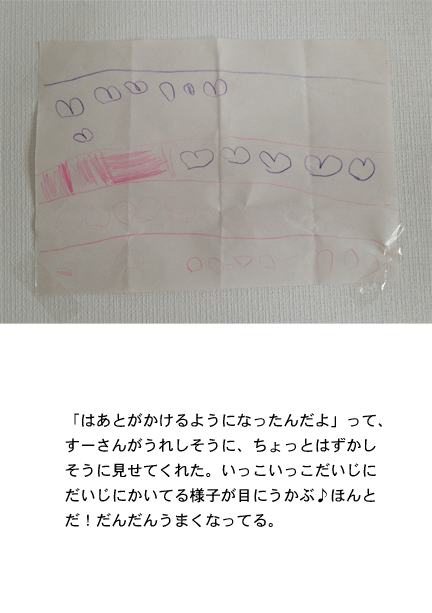 「はあとがかけるようになったんだよ」って、
すーさんがうれしそうに、ちょっとはずかし
そうに見せてくれた。いっこいっこだいじに
だいじにかいてる様子が目にうかぶ♪ほんと
だ！だんだんうまくなってる。